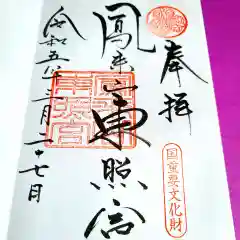 奉拝
国重要文化財
鳳来山東照宮
令和五年二月二十七日